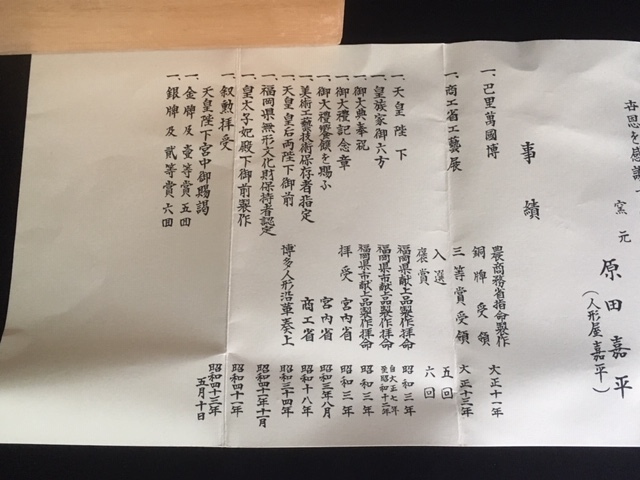 恩を感謝
窯元
原田嘉平
（人形屋嘉平）
事績
一、巴里萬國博 農商務省指命製作
銅牌受領 大正十一年
一、商工省工藝展 三等賞受領 大正十三年
入選 五回
褒賞 六回
一、天皇陛下 福岡県献上品製作拝命 昭和三年
一、皇族家御六方 福岡県市献上品製作拝命 自大正七年 至昭和十二年
一、御大典奉祝 福岡県市献上品製作拝命 昭和三年
一、御大礼記念章 拝受 宮内省 昭和三年
一、御大禮饗饌を賜ふ 宮内省 昭和三年八月
一、美術工藝技術保存者指定 商工省 昭和十八年
一、天皇皇后両陛下御前 博多人形沿革奏上 昭和三十四年
一、福岡県無形文化財保持者認定 昭和四十一年十一月
一、皇太子妃殿下御前製作 昭和四十一年
一、叙勲拝受 昭和四十三年
天皇陛下宮中御賜謁 五月十日
一、金牌及壱等賞五回
一、銀牌及貳等賞六回